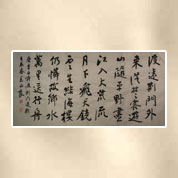 渡遠荊門外
來從楚國遊
山隨平野盡
江入大荒流
月下飛天鏡
雲生結海樓
仍憐故鄉水
萬里送行舟